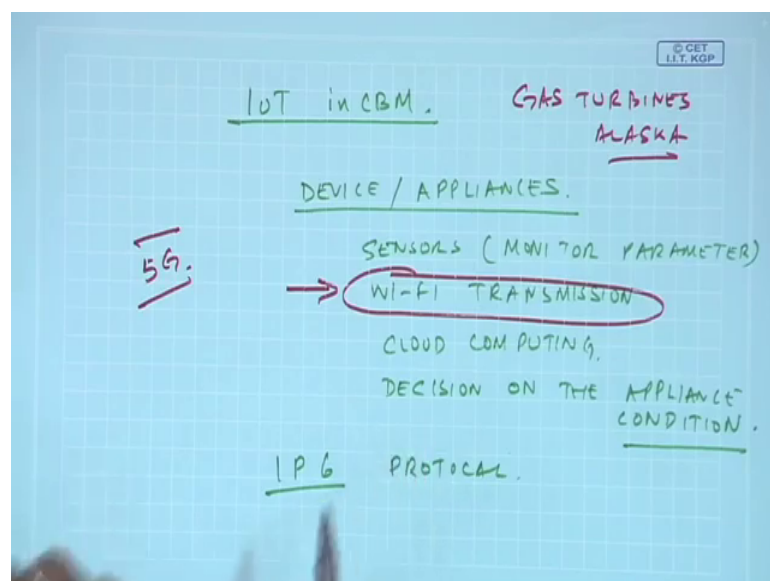 © CET
I.I.T. KGP
IOT in CBM.
GAS TURBINES
ALASKA
DEVICE / APPLIANCES.
SENSORS (MONITOR PARAMETER)
5G.
WI-FI TRANSMISSION
CLOUD COMPUTING.
DECISION ON THE APPLIANCE
CONDITION.
IP6 PROTOCAL.